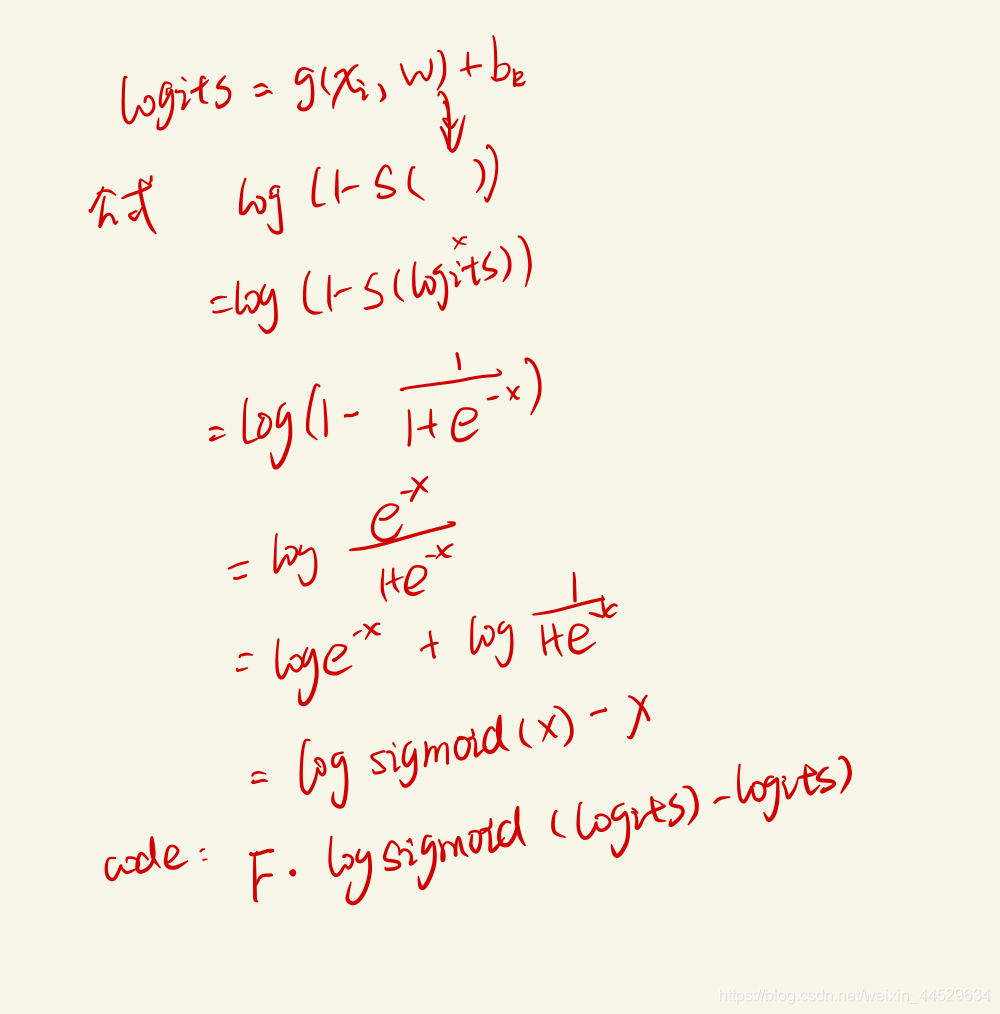 logits = g(xᵢ, w) + bₖ
公式 log (1-S( ))
x
=log (1-S(logits))
= log(1 - 1/(1+e^(-x)))
= log e^(-x)/(1+e^(-x))
= log e^(-x) + log 1/(1+e^(-x))
= log sigmoid(x) - x
code: F. logsigmoid (logits) - logits)
https://blog.csdn.net/weixin_44529634